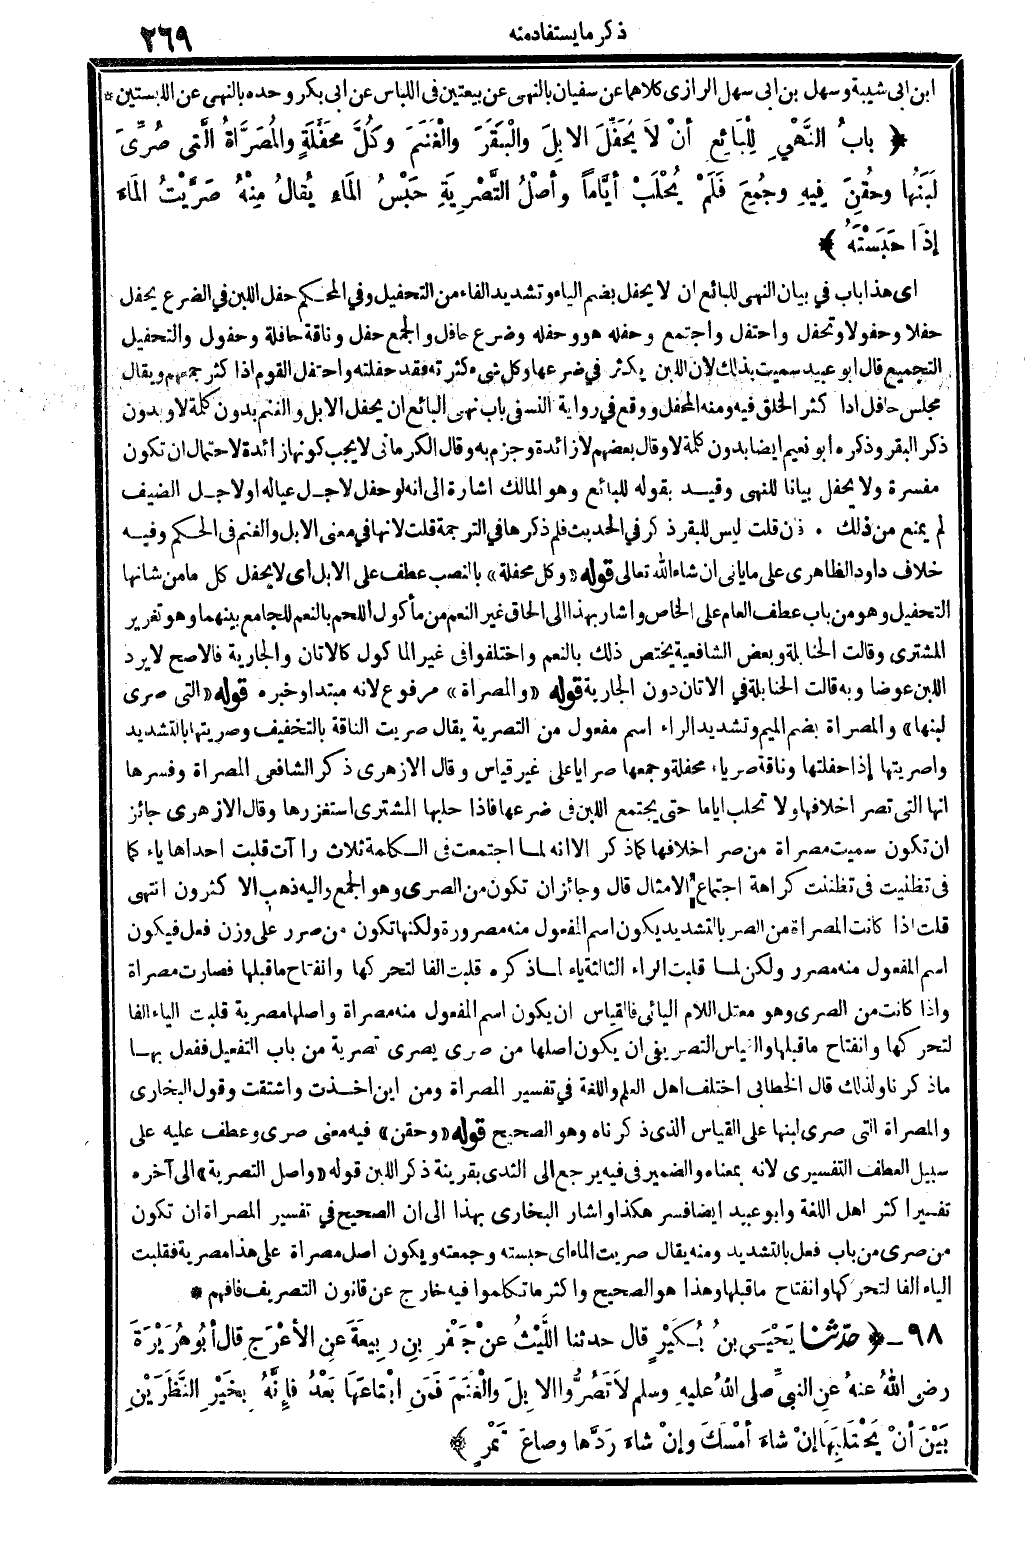 ذكر ما يستفاد منه
٢٦٩
ابن ابى شيبة وسهل بن ابى سهل الرازى كلاهما عن سفيان بالنهى عن بيعتين فى اللباس عن ابى بكر وحده بالنهى عن اللبستين *
﴿ بابُ النَّهْيِ لِلْبَائِعِ أنْ لاَ يُحَفِّلَ الإبِلَ والْبَقَرَ والْغَنَمَ وكُلَّ مُحَفَّلَةٍ والمُصَرَّاةُ الَّتِى صُرِّىَ
لَبَنُها وحُقِنَ فِيهِ وجُمِعَ فَلَمْ يُحْلَبْ أيَّاماً وأصْلُ التَّصْرِيَةِ حَبْسُ المَاءِ يُقالُ مِنْهُ صَرَّيْتُ المَاءَ
إذَا حَبَسْتَهُ ﴾
اى هذا باب في بيان النهى للبائع ان لا يحفل بضم الياء وتشديد الفاء من التحفيل وفي المحكم حفل اللبن في الضرع يحفل
حفلا وحفولا وتحفل واحتفل واجتمع وحفله هو وحفله وضرع حافل والجمع حفل وناقة حافلة وحفول والتحفيل
التجميع قال ابو عبيد سميت بذلك لان اللبن يكثر في ضرعها وكل شىء كثرته فقد حفلته واحتفل القوم اذا كثر جمعهم ويقال
مجلس حافل اذا كثر الخلق فيه ومنه المحفل ووقع في رواية النسفى باب نهى البائع ان يحفل الابل والغنم بدون كلمة لا وبدون
ذكر البقر وذكره ابو نعيم ايضا بدون كلمة لا وقال بعضهم لا زائدة وجزم به وقال الكرمانى لا يجب كونها زائدة لاحتمال ان تكون
مفسرة ولا يحفل بيانا للنهى وقيد بقوله للبائع وهو المالك اشارة الى انه لو حفل لاجل عياله او لاجل الضيف
لم يمنع من ذلك . فان قلت ليس للبقر ذكر في الحديث فلم ذكرها في الترجمة قلت لانها في معنى الابل والغنم فى الحكم وفيه
خلاف داود الظاهرى على ما ياتى ان شاء الله تعالى قوله «وكل محفلة» بالنصب عطف على الابل اى لا يحفل كل ما من شانها
التحفيل وهو من باب عطف العام على الخاص واشار بهذا الى الحاق غير النعم من مأكول اللحم بالنعم للجامع بينهما وهو تغرير
المشترى وقالت الحنابلة وبعض الشافعية يختص ذلك بالنعم واختلفوا فى غير المأكول كالاتان والجارية فالاصح لا يرد
اللبن عوضا وبه قالت الحنابلة في الاتان دون الجارية قوله «والمصراة» مرفوع لانه مبتدا وخبره قوله «التى صرى
لبنها» والمصراة بضم الميم وتشديد الراء اسم مفعول من التصرية يقال صريت الناقة بالتخفيف وصريتها بالتشديد
واصريتها إذا حفلتها وناقة صرياء محفلة وجمعها صرايا على غير قياس وقال الازهرى ذكر الشافعى المصراة وفسرها
انها التى تصر اخلافها ولا تحلب اياما حتى يجتمع اللبن فى ضرعها فاذا حلبها المشترى استغزرها وقال الازهرى جائز
ان تكون سميت مصراة من صر اخلافها كما ذكر الا انه لما اجتمعت فى الكلمة ثلاث راآت قلبت احداها ياء كما
فى تظنيت فى تظننت كراهة اجتماع الامثال قال وجائز ان تكون من الصرى وهو الجمع واليه ذهب الاكثرون انتهى
قلت اذا كانت المصراة من الصر بالتشديد يكون اسم المفعول منه مصرورة ولكنها تكون من صرر على وزن فعل فيكون
اسم المفعول منه مصرر ولكن لما قلبت الراء الثالثة ياء لما ذكره قلبت الفا لتحركها وانفتاح ما قبلها فصارت مصراة
واذا كانت من الصرى وهو معتل اللام اليائى فالقياس ان يكون اسم المفعول منه مصراة واصلها مصرية قلبت الياء الفا
لتحركها وانفتاح ما قبلها والقياس التصريفى ان يكون اصلها من صرى يصرى تصرية من باب التفعيل ففعل بها
ماذكرنا ولذلك قال الخطابى اختلف اهل العلم واللغة في تفسير المصراة ومن اين اخذت واشتقت وقول البخارى
والمصراة التى صرى لبنها على القياس الذى ذكرناه وهو الصحيح قوله «وحقن» فيه معنى صرى وعطف عليه على
سبيل العطف التفسيرى لانه بمعناه والضمير فى فيه يرجع الى الثدى بقرينة ذكر اللبن قوله «واصل التصرية» الى آخره
تفسير اكثر اهل اللغة وابو عبيد ايضا فسر هكذا واشار البخارى بهذا الى ان الصحيح في تفسير المصراة ان تكون
من صرى من باب فعل بالتشديد ومنه يقال صريت الماء اى حبسته وجمعته ويكون اصل مصراة على هذا مصرية فقلبت
الياء الفا لتحركها وانفتاح ما قبلها وهذا هو الصحيح واكثر ما تكلموا فيه خارج عن قانون التصريف فافهم *
٩٨ - ﴿ حدّثنا يَحْيَى بنُ بُكَيْرٍ قال حدثنا اللَّيْثُ عنْ جَعْفَرِ بنِ رَبِيعَةَ عَنِ الأعْرَجِ قال أبُو هُرَيْرَةَ
رضى اللهُ عنهُ عنِ النبىِّ صلى اللهُ عليهِ وسلم لاَ تَصُرُّوا الإبِلَ والْغَنَمَ فَمَنِ ابْتَاعَهَا بَعْدُ فإنَّهُ بِخَيْرِ النَّظَرَيْنِ
بَيْنَ أنْ يَحْتَلِبَهَا إنْ شاءَ أمْسَكَ وإنْ شاءَ رَدَّها وصاعَ تَمْرٍ ﴾